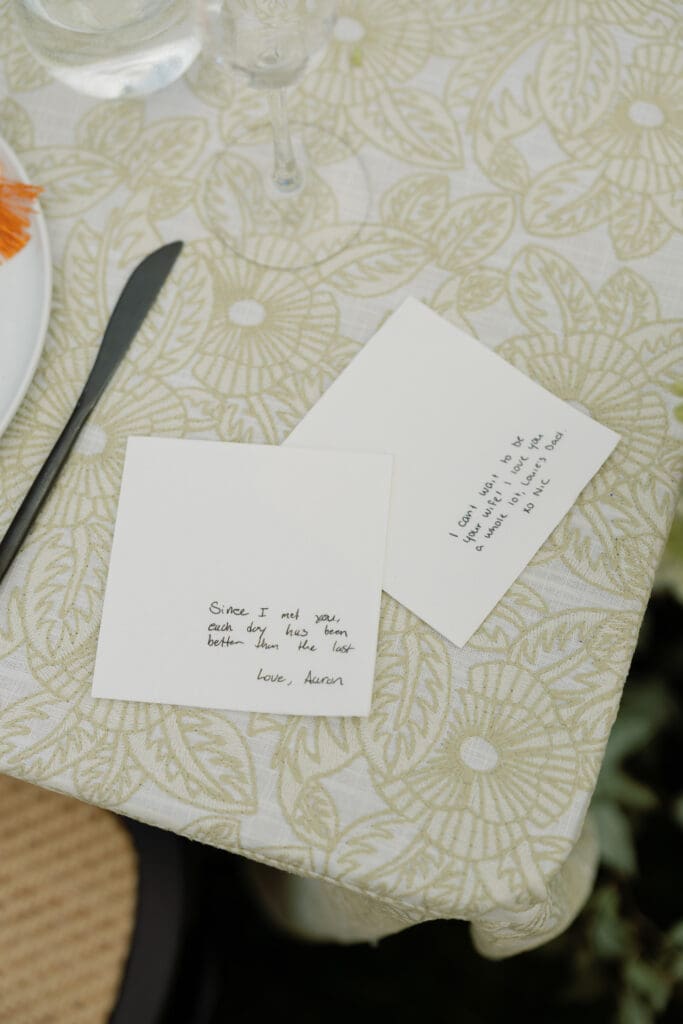 I cant wait to be
your wife! I love you
a whole lot, Louie's Dad.
xo Nic
Since I met you,
each day has been
better than the last
Love, Aaron